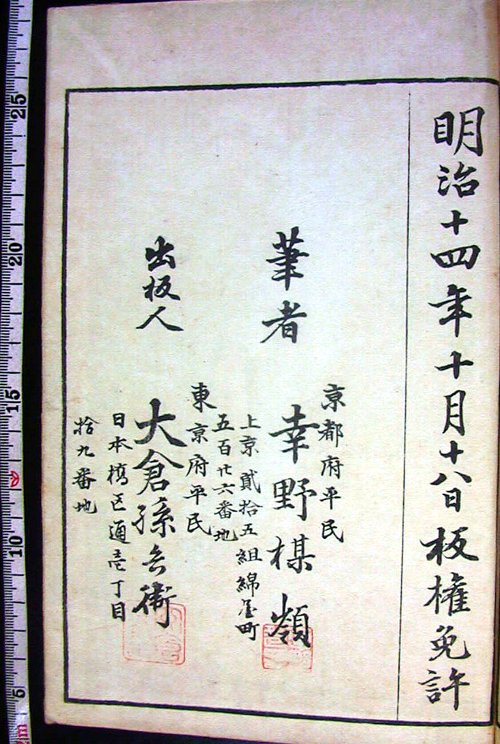 明治十四年十月十八日板権免許
京都府平民
筆者 幸野楳嶺
上京貳拾五組綿屋町
五百廿六番地
東京府平民
出板人 大倉孫兵衛
日本橋區通壱丁目
拾九番地
25
20
15
10
5